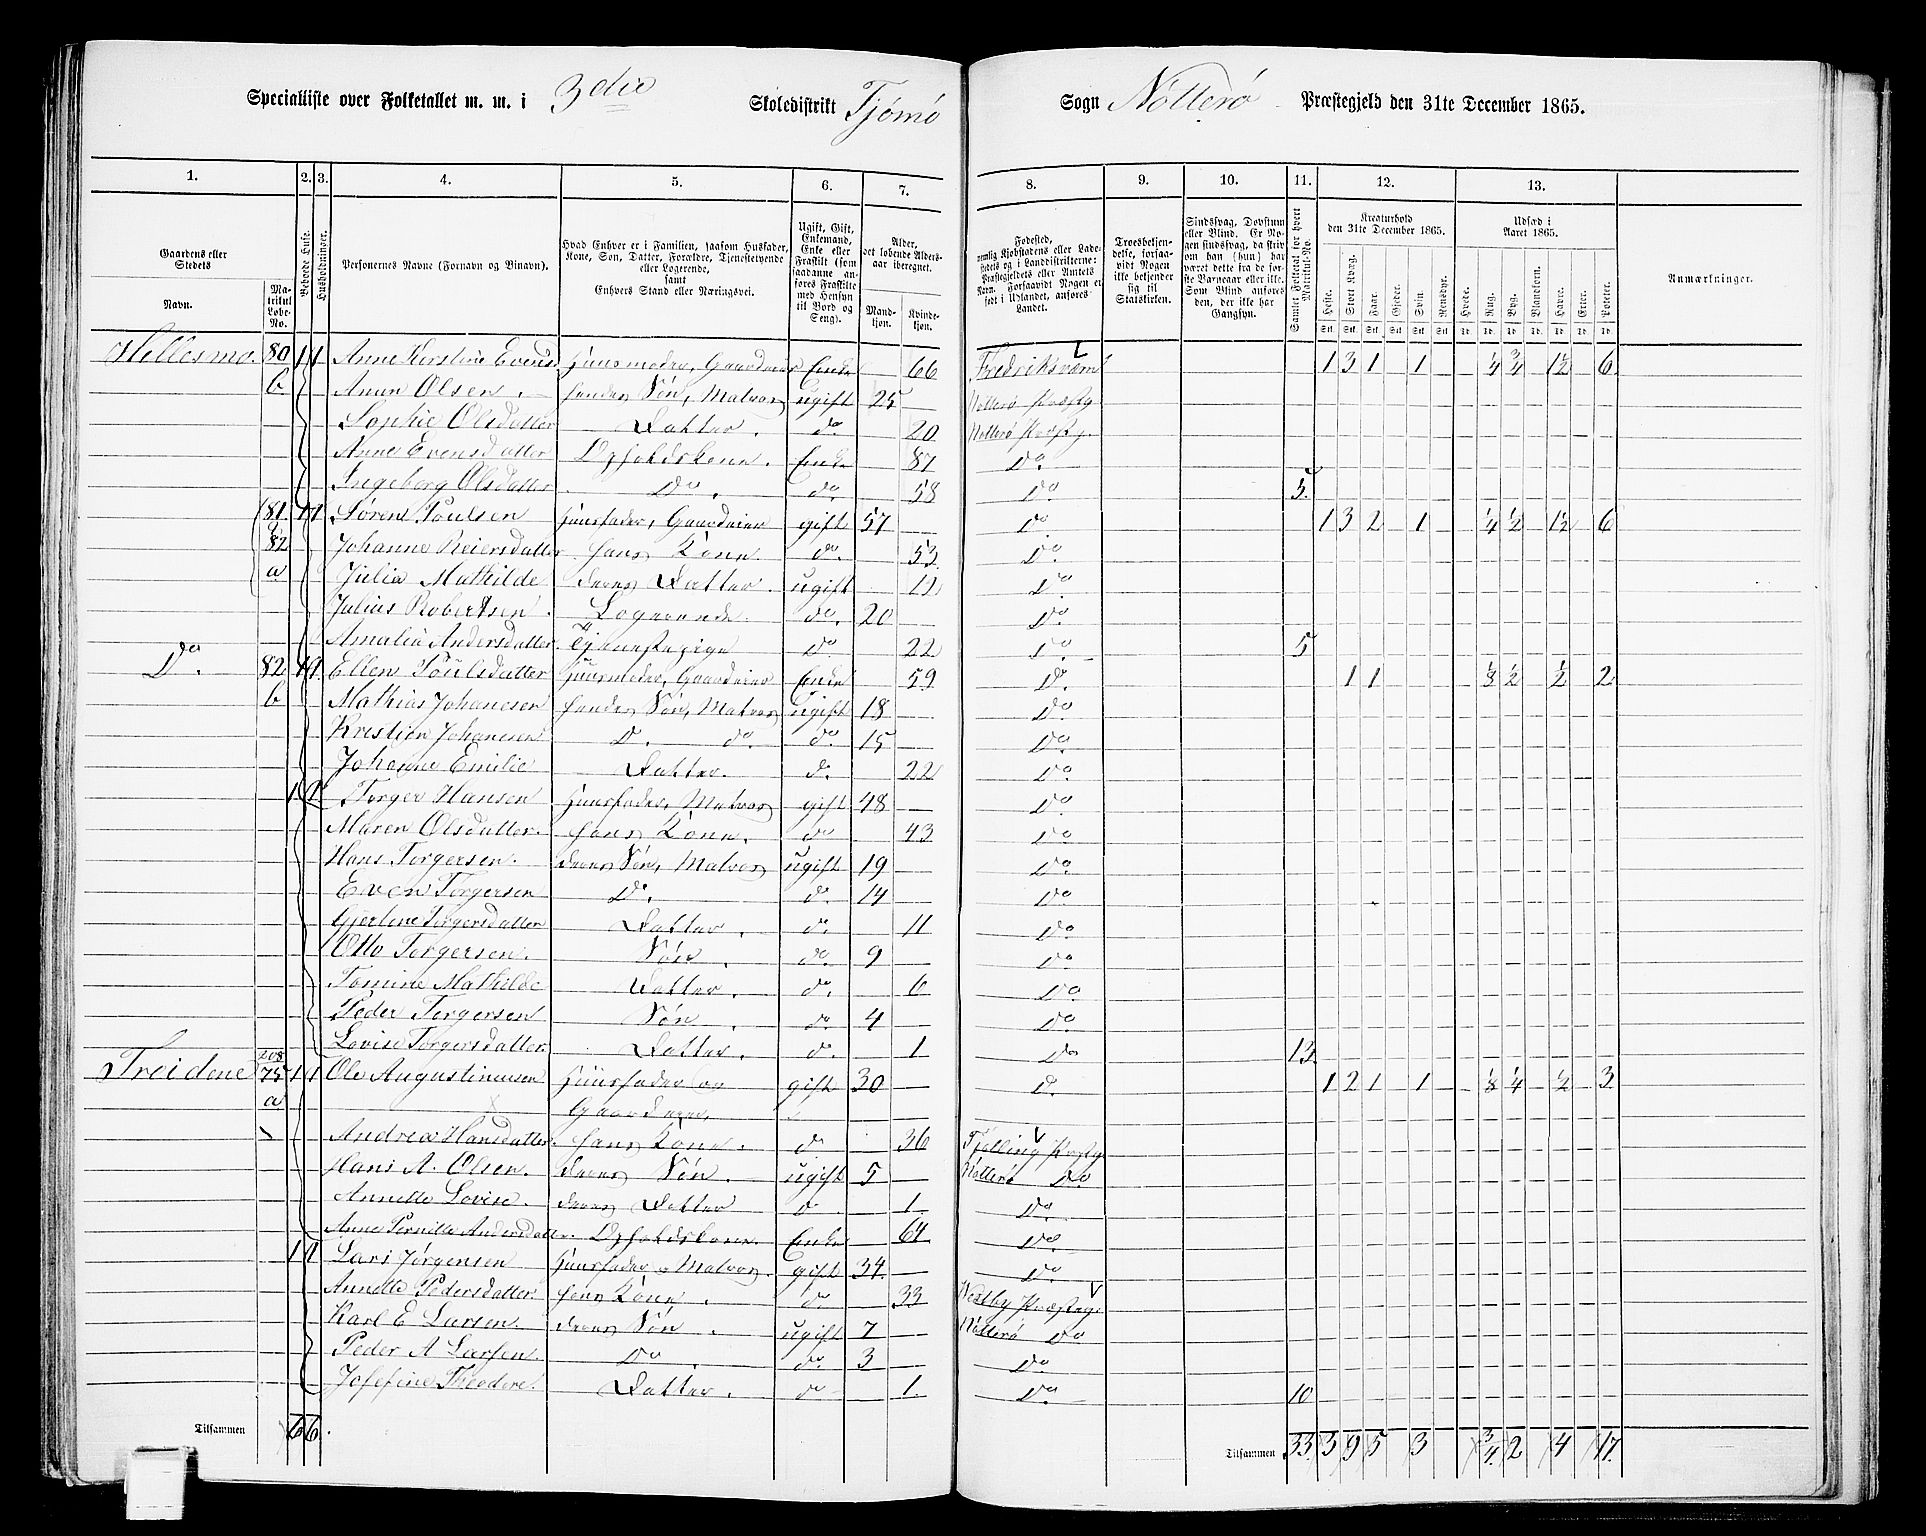 Specialliste over Folketallet m. m. i 3die Skoledistrikt Tjømø Sogn Nøtterø Præstegjeld den 31te December 1865.
1. 2. 3. 4. 5. 6. 7. 8. 9. 10. 11. 12. 13.
Gaardens eller Stedets
Navn.
Matrikul Løbe-No.
Beboede Huse.
Husholdninger.
Personernes Navne (Fornavn og Binavn).
Hvad Enhver er i Familien, saasom Husfader, Kone, Søn, Datter, Forældre, Tjenestetyende eller Logerende, samt Enhvers Stand eller Næringsvei.
Ugift, Gift, Enkemand, Enke eller Fraskilt (som saadanne anføres Fraskilte med Hensyn til Bord og Seng).
Alder, det løbende Aldersaar iberegnet.
Mandkjøn. Kvindekjøn.
Fødested,
Troesbekjendelse, forsaavidt Nogen ikke bekjender sig til Statskirken.
Sindssvag, Døvstum eller Blind. Er Nogen sindssvag, da skriv om han (hun) har været dette fra de første Barneaar eller ikke. Som Blind anføres den, der ikke har Gangsyn.
Samlet Folketal for hvert Matrikul-No.
Kreaturhold den 31te December 1865.
Heste. Stort Kvæg. Faar. Gjeder. Svin. Rensdyr.
Udsæd i Aaret 1865.
Hvede. Rug. Byg. Blandkorn. Havre. Erter. Poteter.
Anmærkninger.
Hellesmo. 80 b 1 1 Anne Kirstine Evensd Huusmoder, Gaardeier Enke 66 Fredriksværn 1 3 1 1 1/4 3/4 1 1/2 6
Anun Olsen. hendes Søn, Matros ugift 25 Nøtterø Præstg
Sophie Olsdatter Datter. do. 20 Nøtterø Præstg.
Anne Evensdatter Opholdskone. Enke 87 Do.
Ingeborg Olsdatter Do. do. 58 Do. 5.
81 & 82 a 1 1 Søren Poulsen Huusfader, Gaardeier gift 57 Do. 1 3 2 1 1/4 1/2 1 1/2 6
Johanne Reiersdatter hans Kone do. 53 Do
Julia Mathilde deres Datter. ugift 12 Do.
Julius Robertsen. Logerende. do. 20 Do.
Amalia Andersdatter. Tjenestepige do. 22 Do. 5
Do. 82 b 1 1 Ellen Poulsdatter Huusmoder, Gaardeier Enke 59 Do. 1 1 1/8 1/2 1/2 2
Mathias Johanesen hendes Søn, Matros ugift 18 Do.
Kristian Johanesen D. do. do 15 Do.
Johanne Emilie Datter. do. 22 Do.
1 1 Torger Hansen Huusfader, Matros gift 48 Do.
Maren Olsdatter. hans Kone. do 43 Do
Hans Torgersen. deres Søn, Matros ugift 19 Do.
Even Torgersen Do. do. 14 Do
Gjerline Torgersdatter Datter. do. 11 Do.
Otto Torgersen. Søn. do. 9 Do.
Tomine Mathilde Datter. do. 6 Do
Peder Torgersen Søn. do. 4 Do.
Lovise Torgersdatter. Datter. do. 1 Do 13.
Treidene 208 75 a 1 1 Ole Augustinusen Huusfader og gift 30 Do. 1 2 1 1 1/8 1/4 1/2 3
Gaardeier,
Andrea Hansdatter. hans Kone. do 36 Tjølling Præstg
Hans A. Olsen. deres Søn. ugift 5 Nøtterø Do
Annette Lovise. deres Datter do 1. Do.
Anne Pernille Andersdatter. Opholdskone. Enke 64 Do.
1 1 Lars Jørgensen Huusfader o Matros. gift 34. Do.
Annette Pedersdatter hans Kone. do. 33 Vestby Præsteg.
Karl E Larsen. deres Søn. ugift 7 Nøtterø Do
Peder A Larsen. Do. do. 3 Do
Josefine Theodore. Datter. do 1. Do. 10
Tilsammen 6 6. Tilsammen 33. 3 9 5 3 3/4 2 4 17.